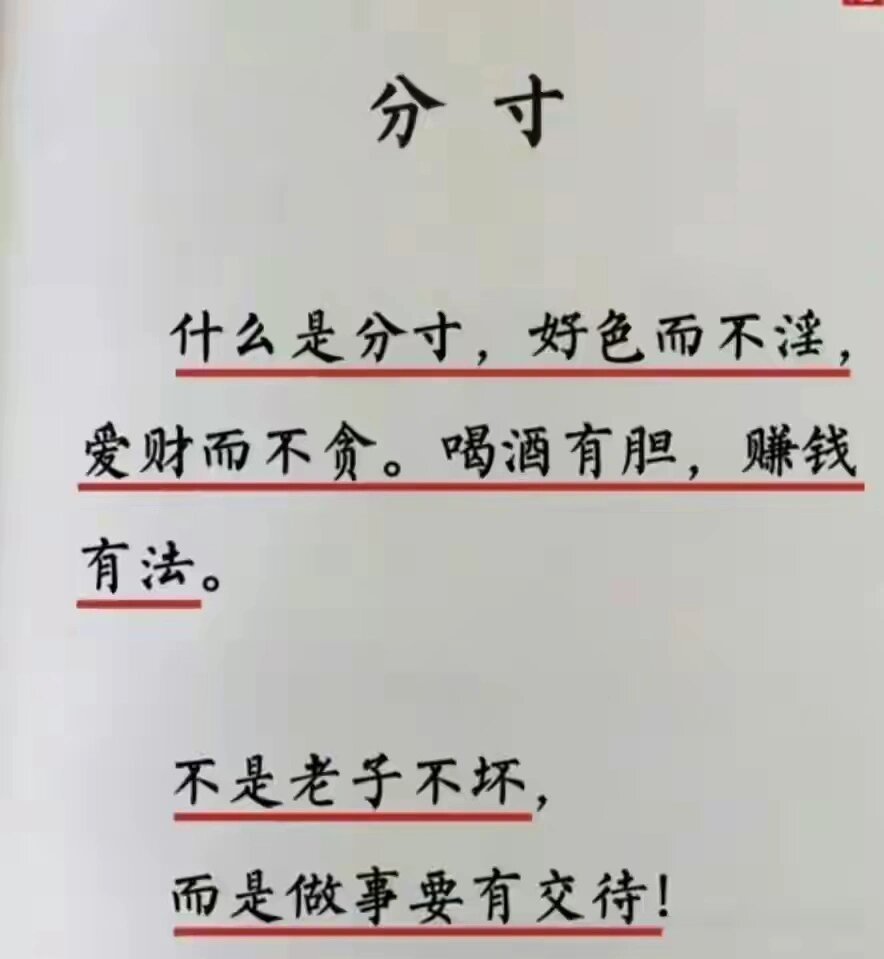 分寸
什么是分寸，好色而不淫，
爱财而不贪。喝酒有胆，赚钱
有法。
不是老子不坏，
而是做事要有交待！